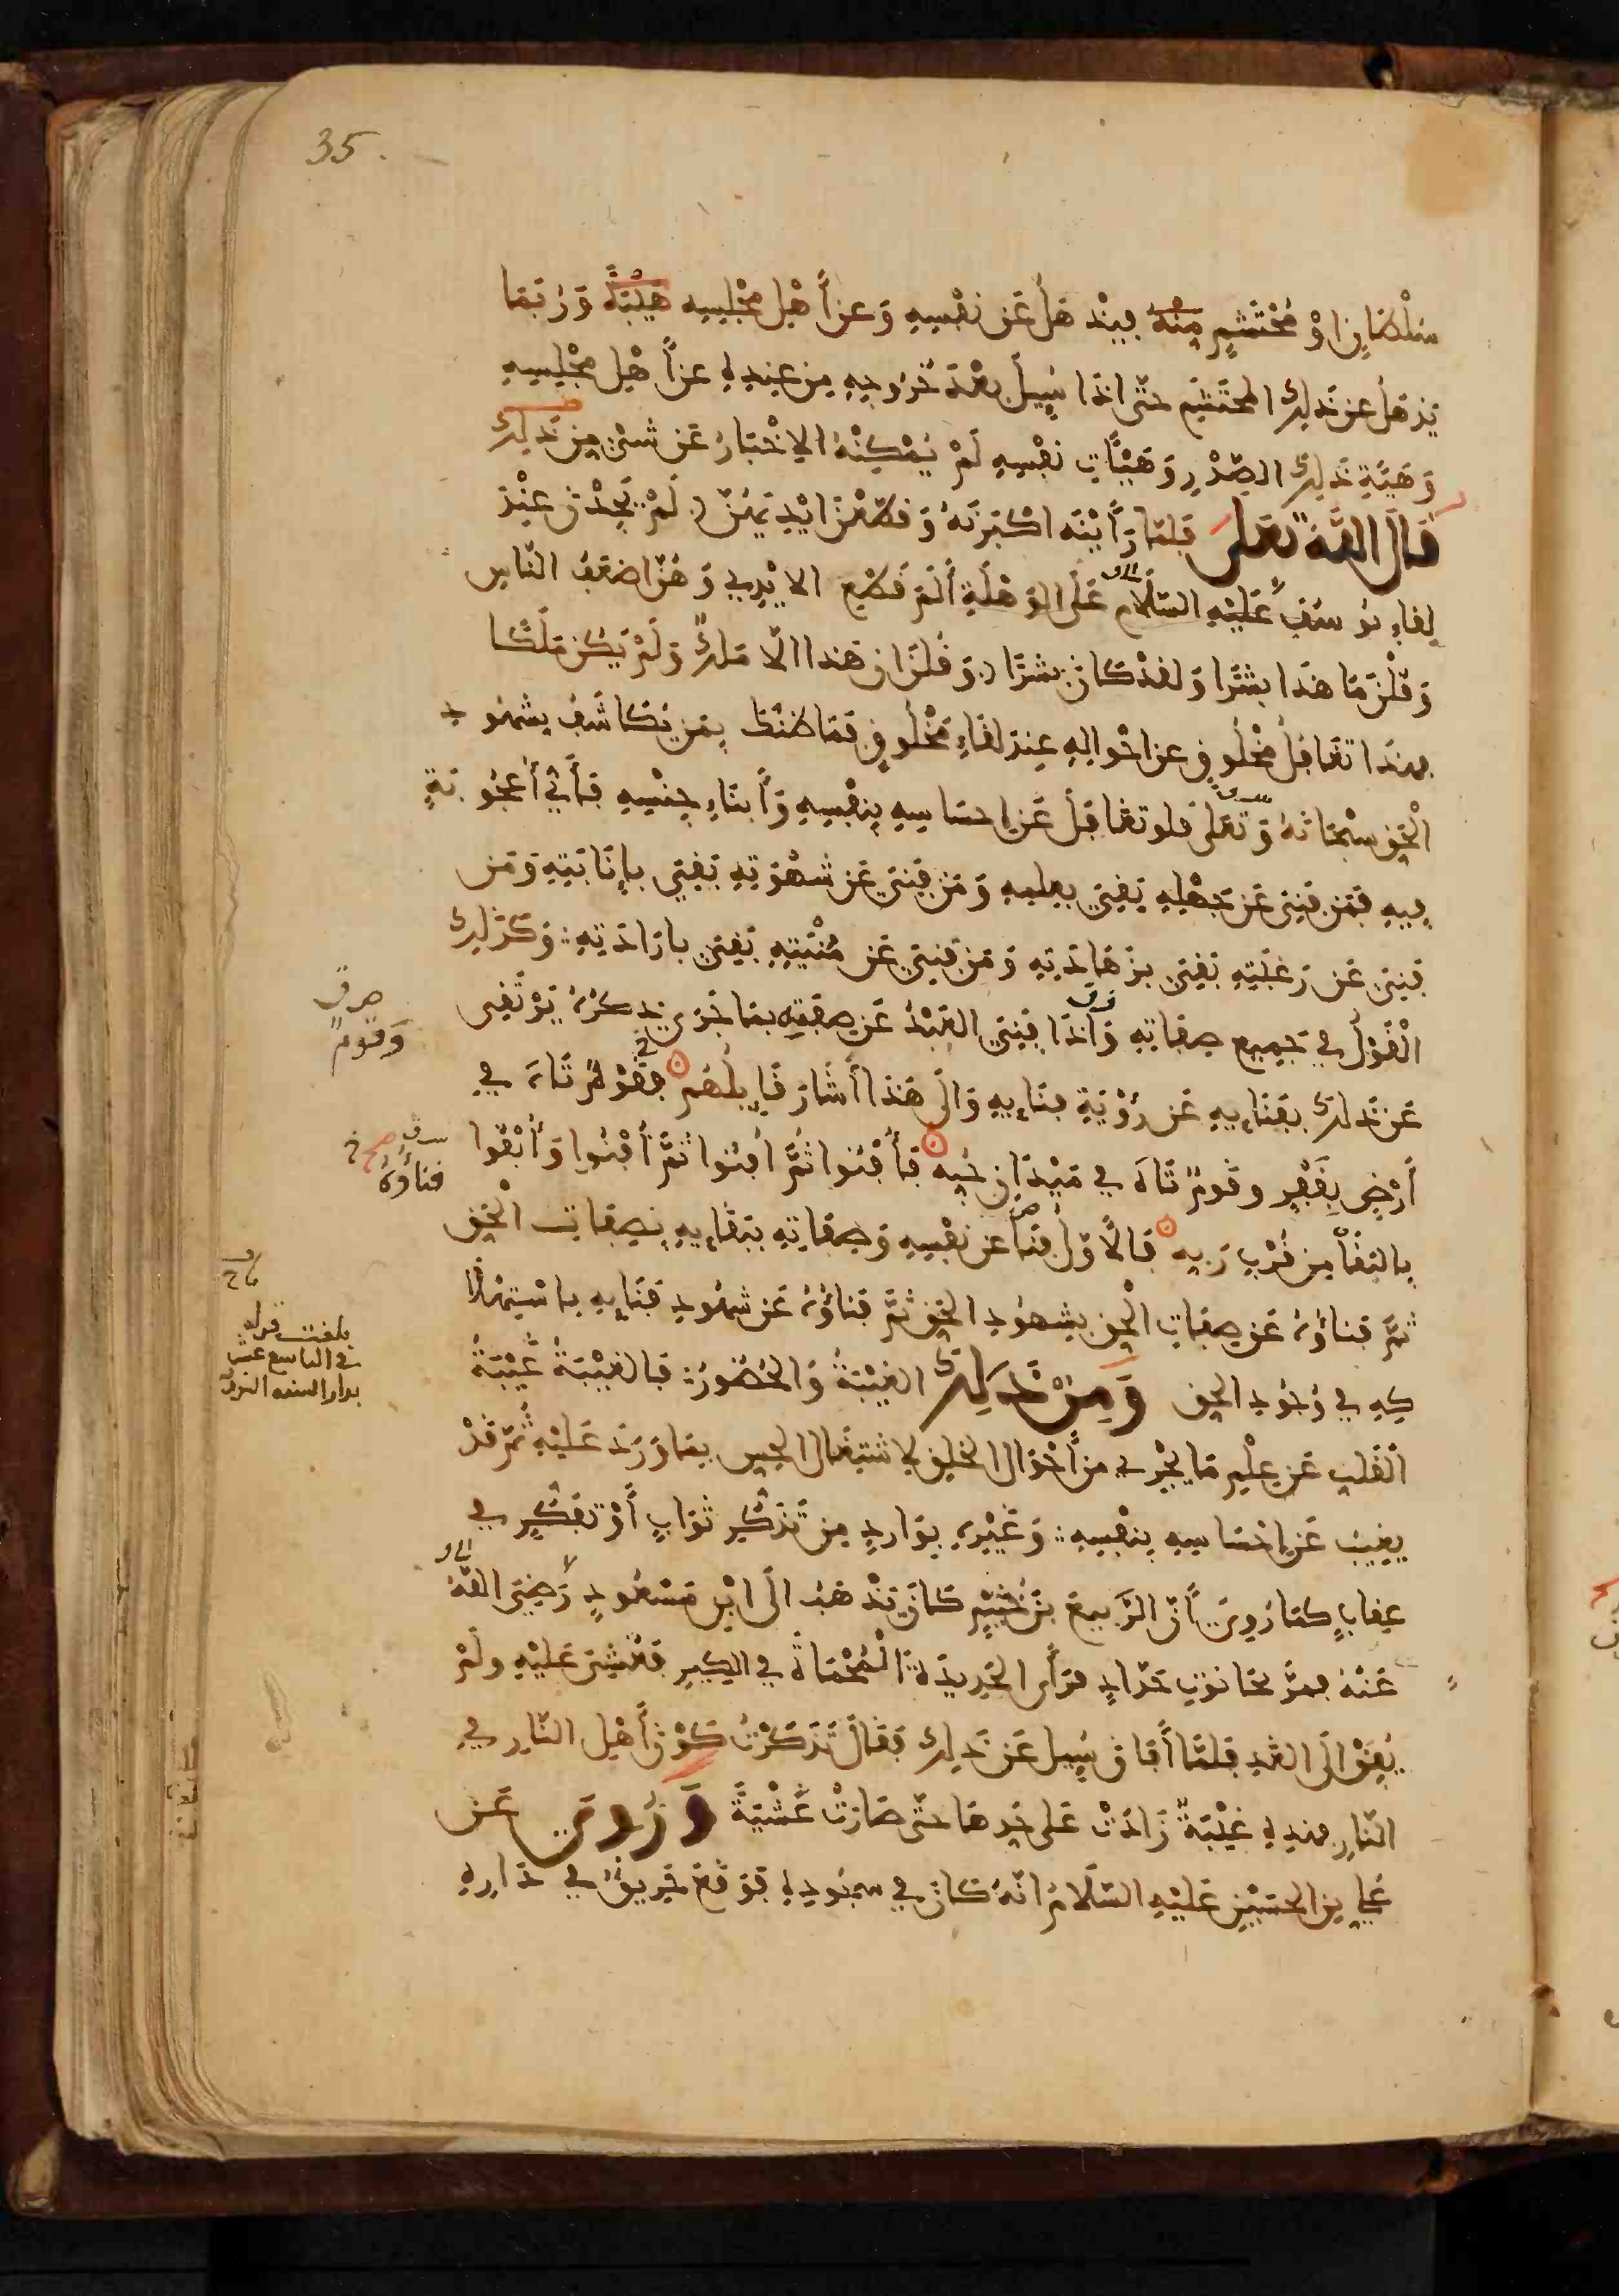 35.
سلْطَانٍ اوْ مُحْتَشِمٍ مِنْهُ فيَذهَلُ عَن نَفْسِهِ وَعن أهْل مَجْلِسِهِ هَيْبَةً وَرُبَمَا
يَذهَلُ عن ذَلِكَ المحْتَشِم حتّى اذَا سُيِلَ بعْدَ خُرُوجِهِ مِن عِندِهِ عن أهْلِ مَجْلِسِهِ
وَهَيْئَةِ ذَلِكَ الصَّدْرِ وَهَيْئَاتِ نَفْسِهِ لَمْ يُمْكِنْهُ الاخْبَارُ عَن شىْءٍ مِن ذَلِكَ
قَالَ اللَّهُ تعَلى فَلمّا رَأَيْنَه اكْبَرْنَهُ وَقطّعْنَ ايْدِيَهُنّ لَمْ يَجِدْنَ عِنْدَ
لِقاءِ يُوسُفَ عَليْهِ السّلَام عَلَى الوَهْلَةِ أَلَمَ قَطْعِ الايْدِي وَهُنّ اضعَفُ النّاسِ
وَقُلْنَ مَا هَذَا بشَرًا وَلقدْ كَانَ بشَرًا وَقُلنَ ان هَذا الّا مَلَكٌ وَلَمْ يَكن مَلَكًا
فهَذَا تغَافُلُ مخْلُوقٍ عن احْوالِهِ عِندَ لقَاءِ مَخْلُوقٍ فَمَا ظَنُّكَ بِمَن تكَاشَفَ بِشهُودِ
الْحَقِ سبْحَانَهُ وَتعَلى فلو تغَافَلَ عَن احسَاسِهِ بِنَفْسِهِ وَأبنَاءِ جِنْسِهِ فَأيُّ أُعْجُوبَةٍ
فِيهِ فَمَن فَنِيَ عَن جَهْلِهِ بَقِيَ بِعِلمِهِ وَمَن فَنِيَ عَن شَهْوَتِهِ بَقِيَ بإِنَابَتِهِ وَمَن
فَنِيَ عَن رَغْبَتِهِ بَقِيَ بزَهَادَتِهِ وَمَن فَنِيَ عَن مُنْيَتِهِ بَقِيَ بارَادَتِهِ وَكَذَلِكَ
الْقَوْلُ في جَمِيعِ صِفَاتِهِ وَاذَا فَنِيَ العَبْدُ عَن صِفَتِهِ بمَا جَرَى ذِكْرُهُ يَرْتَقِى
عَن ذَلِكَ بفَنَاءِيهِ عَن رُؤْيَةِ فنَاءِيهِ وَالَى هَذا أَشَارَ قَايِلُهُم فقَوْمٌ تَاهَ في
أَرْضٍ بِقَفْرٍ وقَومٌ تَاهَ في مَيْدَانِ حُبِهِ فَأُفْنُوا ثُمَّ أُفنُوا ثمَّ أُفْنُوا وَأُبْقُوا
بالبَقَا مِن قُرْبِ رَبِهِ فَالأوَلُ فنَا عن نَفْسِهِ وَصِفَاتِهِ ببَقَاءِيهِ بِصِفاتِ الْحَقِ
ثمَّ فنَاؤُهُ عَن صِفَاتِ الْحَقِ بِشهُودِ الْحَقِ ثمَّ فَنَاؤُهُ عَن شهُودِ فَنَايِهِ باسْتِهْلَا
كِهِ في وُجُودِ الحَقِ وَمِنْ ذَلِكَ الغَيْبَةُ وَالحُضُورُ فَالغَيْبَةُ غَيْبَةُ
القَلبِ عَن عِلْمِ مَا يَجْرِي مِن أَحْوَالِ الخَلقِ لاشتِغَالِ الحِسِ بمَا وَرَدَ عَليْهِ ثُمّ قَدْ
يغِيبُ عَن احْسَاسِهِ بِنفْسِهِ وَغَيْرِهِ بِوَارِدٍ مِن تَذكُّرِ ثوَابٍ أَوْ تفَكُّرٍ في
عِقابٍ كمَا رُوِيَ أَنّ الرَّبِيعَ بْنَ خُثيْمٍ كانَ يَذْهَبُ الَى ابْنِ مَسْعُودٍ رَضِيَ اللَّهُ
عَنْهُ فمَرَّ بحَانوتِ حَدّادٍ فرَأى الحَدِيدَةَ الْمُحْمَاةَ في الكِيرِ فغُشِيَ عَليْهِ ولَمْ
يُفِقْ الَى الغَدِ فلمّا أَفَاقَ سُيِل عَن ذَلِكَ فَقَالَ تَذَكَّرْتُ كَوْنَ أَهْلِ النّارِ في
النّارِ فهَذِهِ غَيْبَةٌ زَادَتْ عَلى حَدِهَا حتّى صَارَتْ غَشْيَةً وَرُوِيَ عَن
عَلي بن الحسَيْنِ عَليْهِ السّلَامُ انّهُ كَانَ في سجُودِهِ فوَقَعَ حَرِيقٌ في دَارِهِ
وَقَومٌ
فناؤُهُ
بلغت قراه
في التاسع عشر